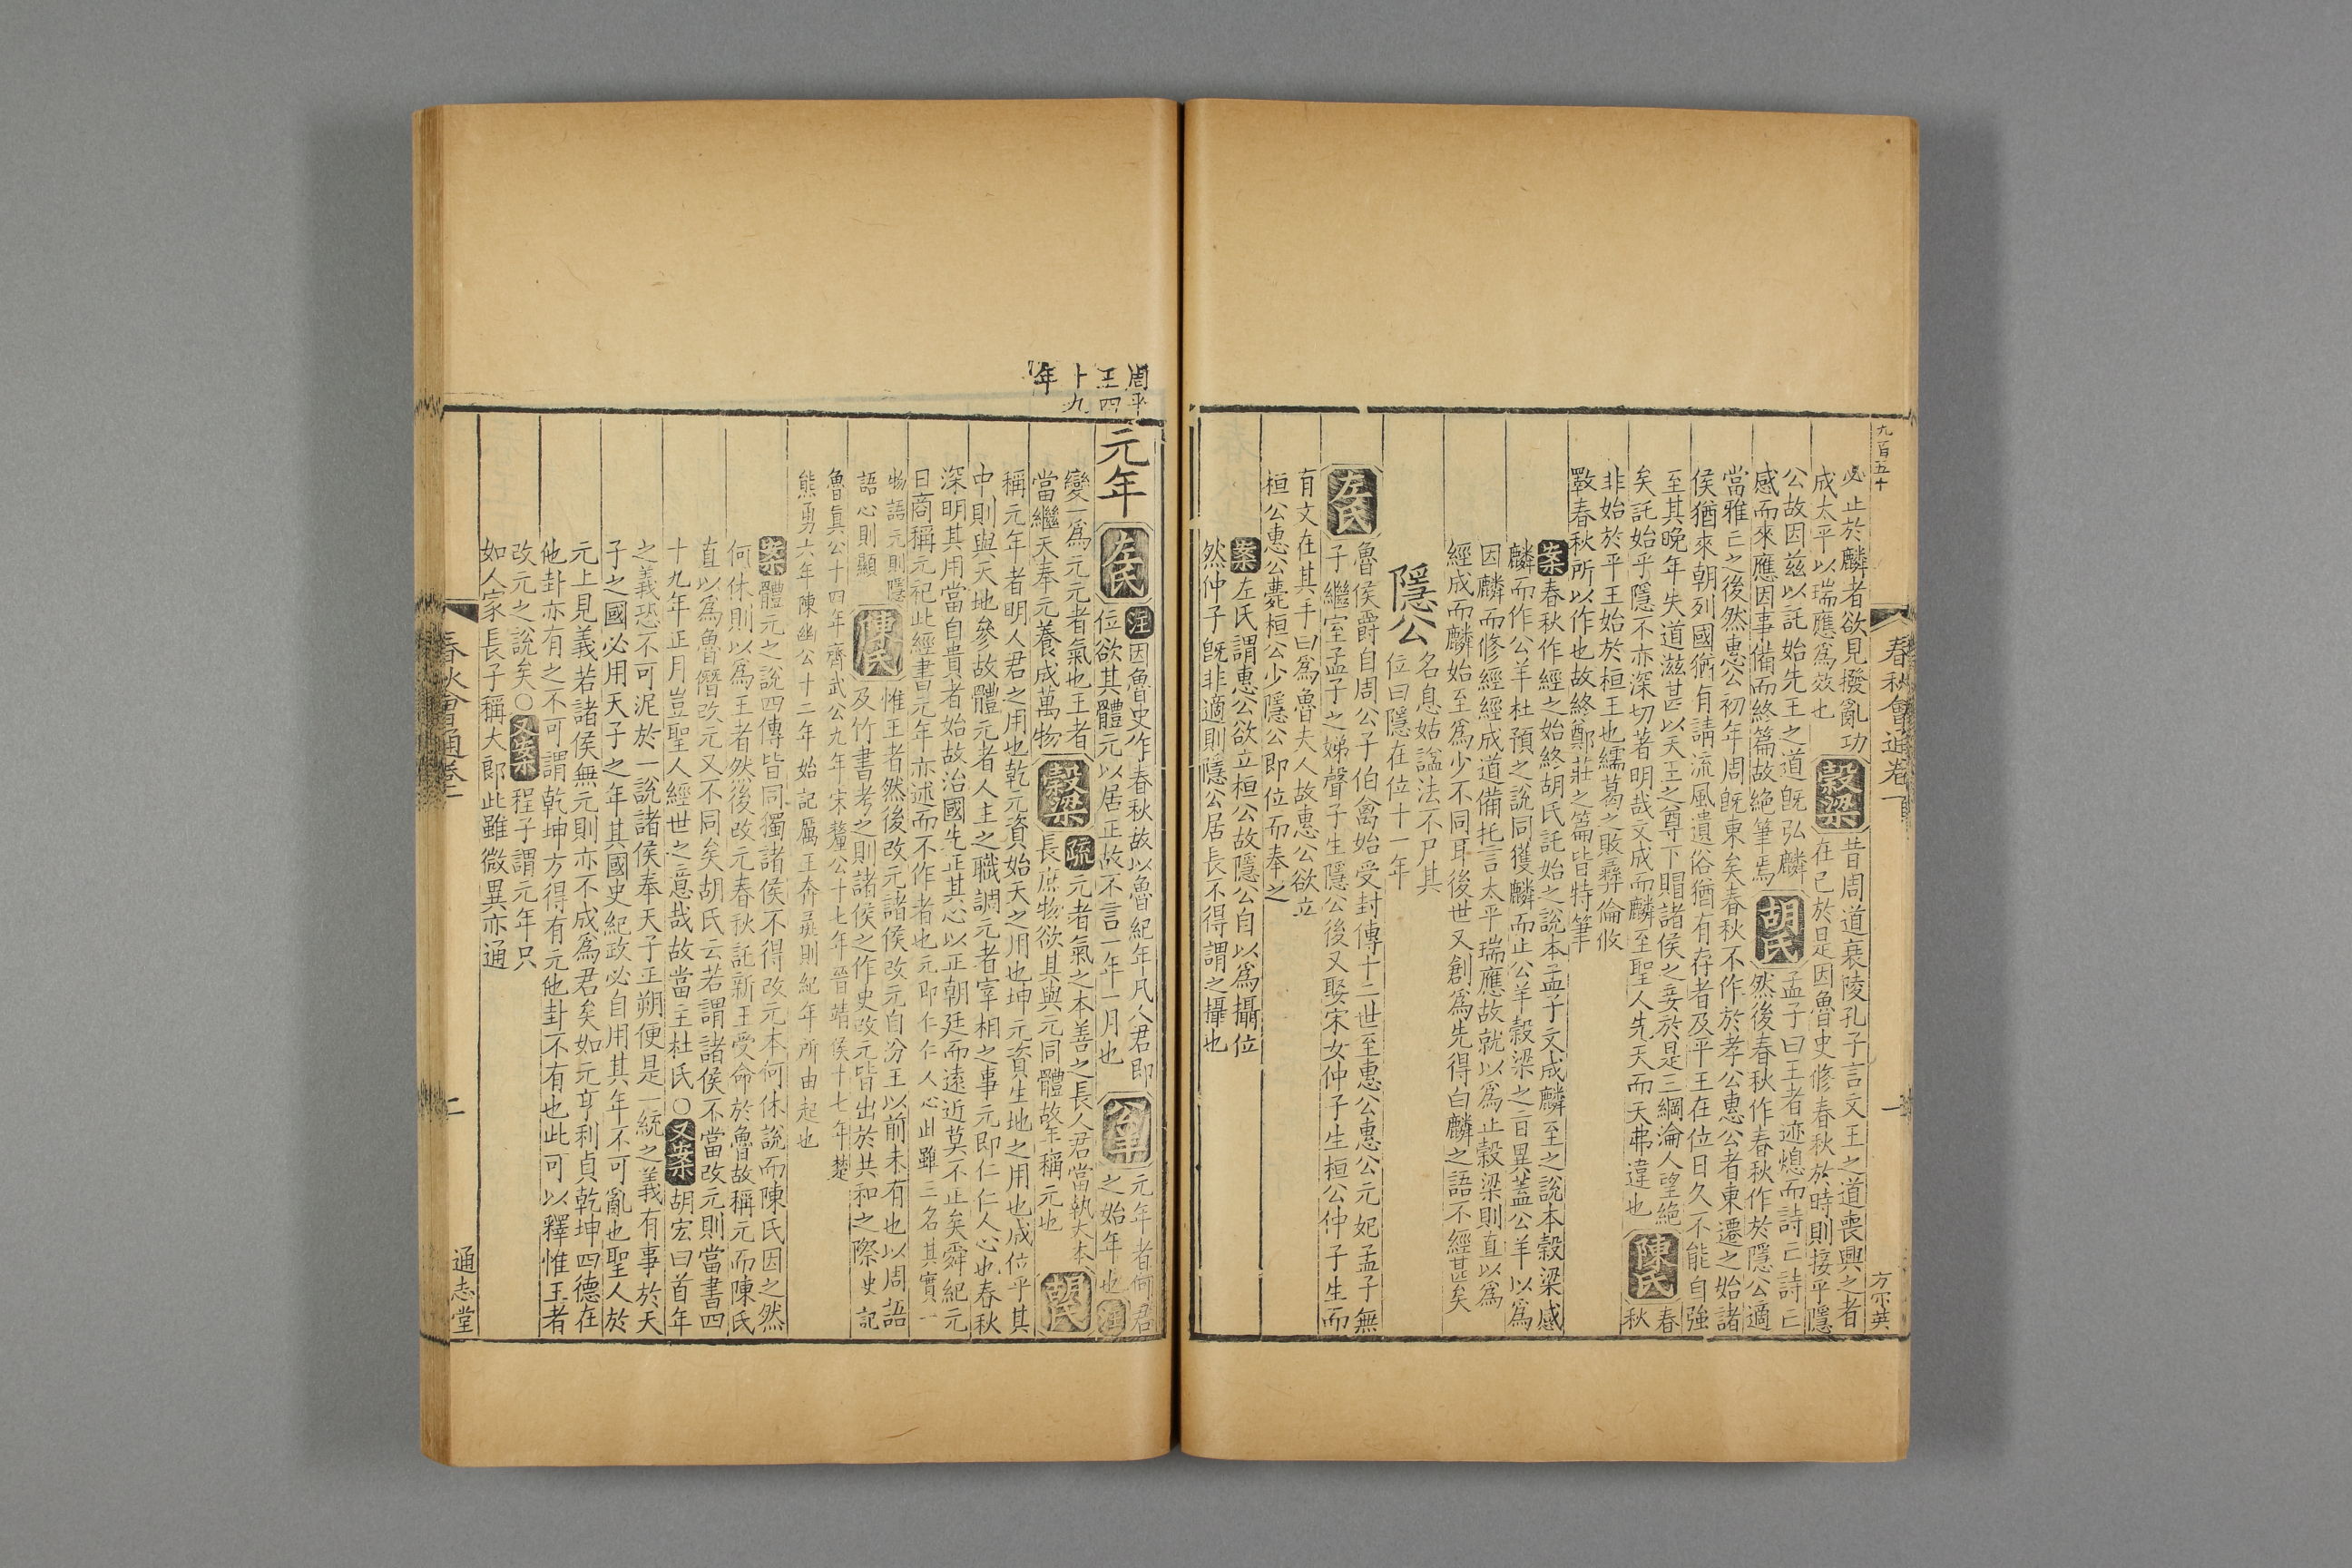 九百五十
春秋會通卷一
一
方宗英
必止於麟者欲見撥亂功
成太平以瑞應爲效也
穀梁
昔周道衰陵孔子言文王之道喪興之者
在已於是因魯史修春秋於時則接乎隱
公故因茲以託始先王之道旣弘麟
感而來應因事備而終篇故絶筆焉
胡氏
孟子曰王者迹熄而詩亡詩亡
然後春秋作春秋作於隱公適
當雅亡之後然惠公初年周旣東矣春秋不作於孝公惠公者東遷之始諸
侯猶來朝列國猶有請流風遺俗猶有存者及平王在位日久不能自強
至其晚年失道滋甚以天王之尊下賵諸侯之妾於是三綱淪人望絶
矣託始乎隱不亦深切著明哉文成而麟至聖人先天而天弗違也
陳氏
春
秋
非始於平王始於桓王也繻葛之敗彛倫攸
斁春秋所以作也故終鄭莊之篇皆特筆
案
春秋作經之始終胡氏託始之說本孟子文成麟至之說本穀梁感
麟而作公羊杜預之說同獲麟而止公羊穀梁之旨異蓋公羊以爲
因麟而修經經成道備托言太平瑞應故就以爲止穀梁則直以爲
經成而麟始至爲少不同耳後世又創爲先得白麟之語不經甚矣
隱公
名息姑謚法不尸其
位曰隱在位十一年
左氏
魯侯爵自周公子伯禽始受封傳十二世至惠公惠公元妃孟子無
子繼室孟子之娣聲子生隱公後又娶宋女仲子生桓公仲子生而
有文在其手曰爲魯夫人故惠公欲立
桓公惠公薨桓公少隱公即位而奉之
案
左氏謂惠公欲立桓公故隱公自以爲攝位
然仲子旣非適則隱公居長不得謂之攝也
周平
王四
十九
年
元年
左氏
注
因魯史作春秋故以魯紀年凡人君即
位欲其體元以居正故不言一年一月也
公羊
元年者何君
之始年也
注
變一爲元元者氣也王者
當繼天奉元養成萬物
穀梁
疏
元者氣之本善之長人君當執大本
長庶物欲其與元同體故年稱元也
胡氏
稱元年者明人君之用也乾元資始天之用也坤元資生地之用也成位乎其
中則與天地參故體元者人主之職調元者宰相之事元即仁仁人心也春秋
深明其用當自貴者始故治國先正其心以正朝廷而遠近莫不正矣舜紀元
日商稱元祀此經書元年亦述而不作者也元即仁仁人心此雖三名其實一
物語元則隱
語心則顯
陳氏
惟王者然後改元諸侯改元自汾王以前未有也以周語
及竹書考之則諸侯之作史改元皆出於共和之際史記
魯眞公十四年齊武公九年宋釐公十七年晉靖侯十七年楚
熊勇六年陳幽公十二年始記厲王奔彘則紀年所由起也
案
體元之說四傳皆同獨諸侯不得改元本何休說而陳氏因之然
何休則以爲王者然後改元春秋託新王受命於魯故稱元而陳氏
直以爲魯僭改元又不同矣胡氏云若謂諸侯不當改元則當書四
十九年正月豈聖人經世之意哉故當主杜氏○
又案
胡宏曰首年
之義恐不可泥於一說諸侯奉天子正朔便是一統之義有事於天
子之國必用天子之年其國史紀政必自用其年不可亂也聖人於
元上見義若諸侯無元則亦不成爲君矣如元亨利貞乾坤四德在
他卦亦有之不可謂乾坤方得有元他卦不有也此可以釋惟王者
改元之說矣○
又案
程子謂元年只
如人家長子稱大郎此雖微異亦通
春秋會通卷一
二
通志堂